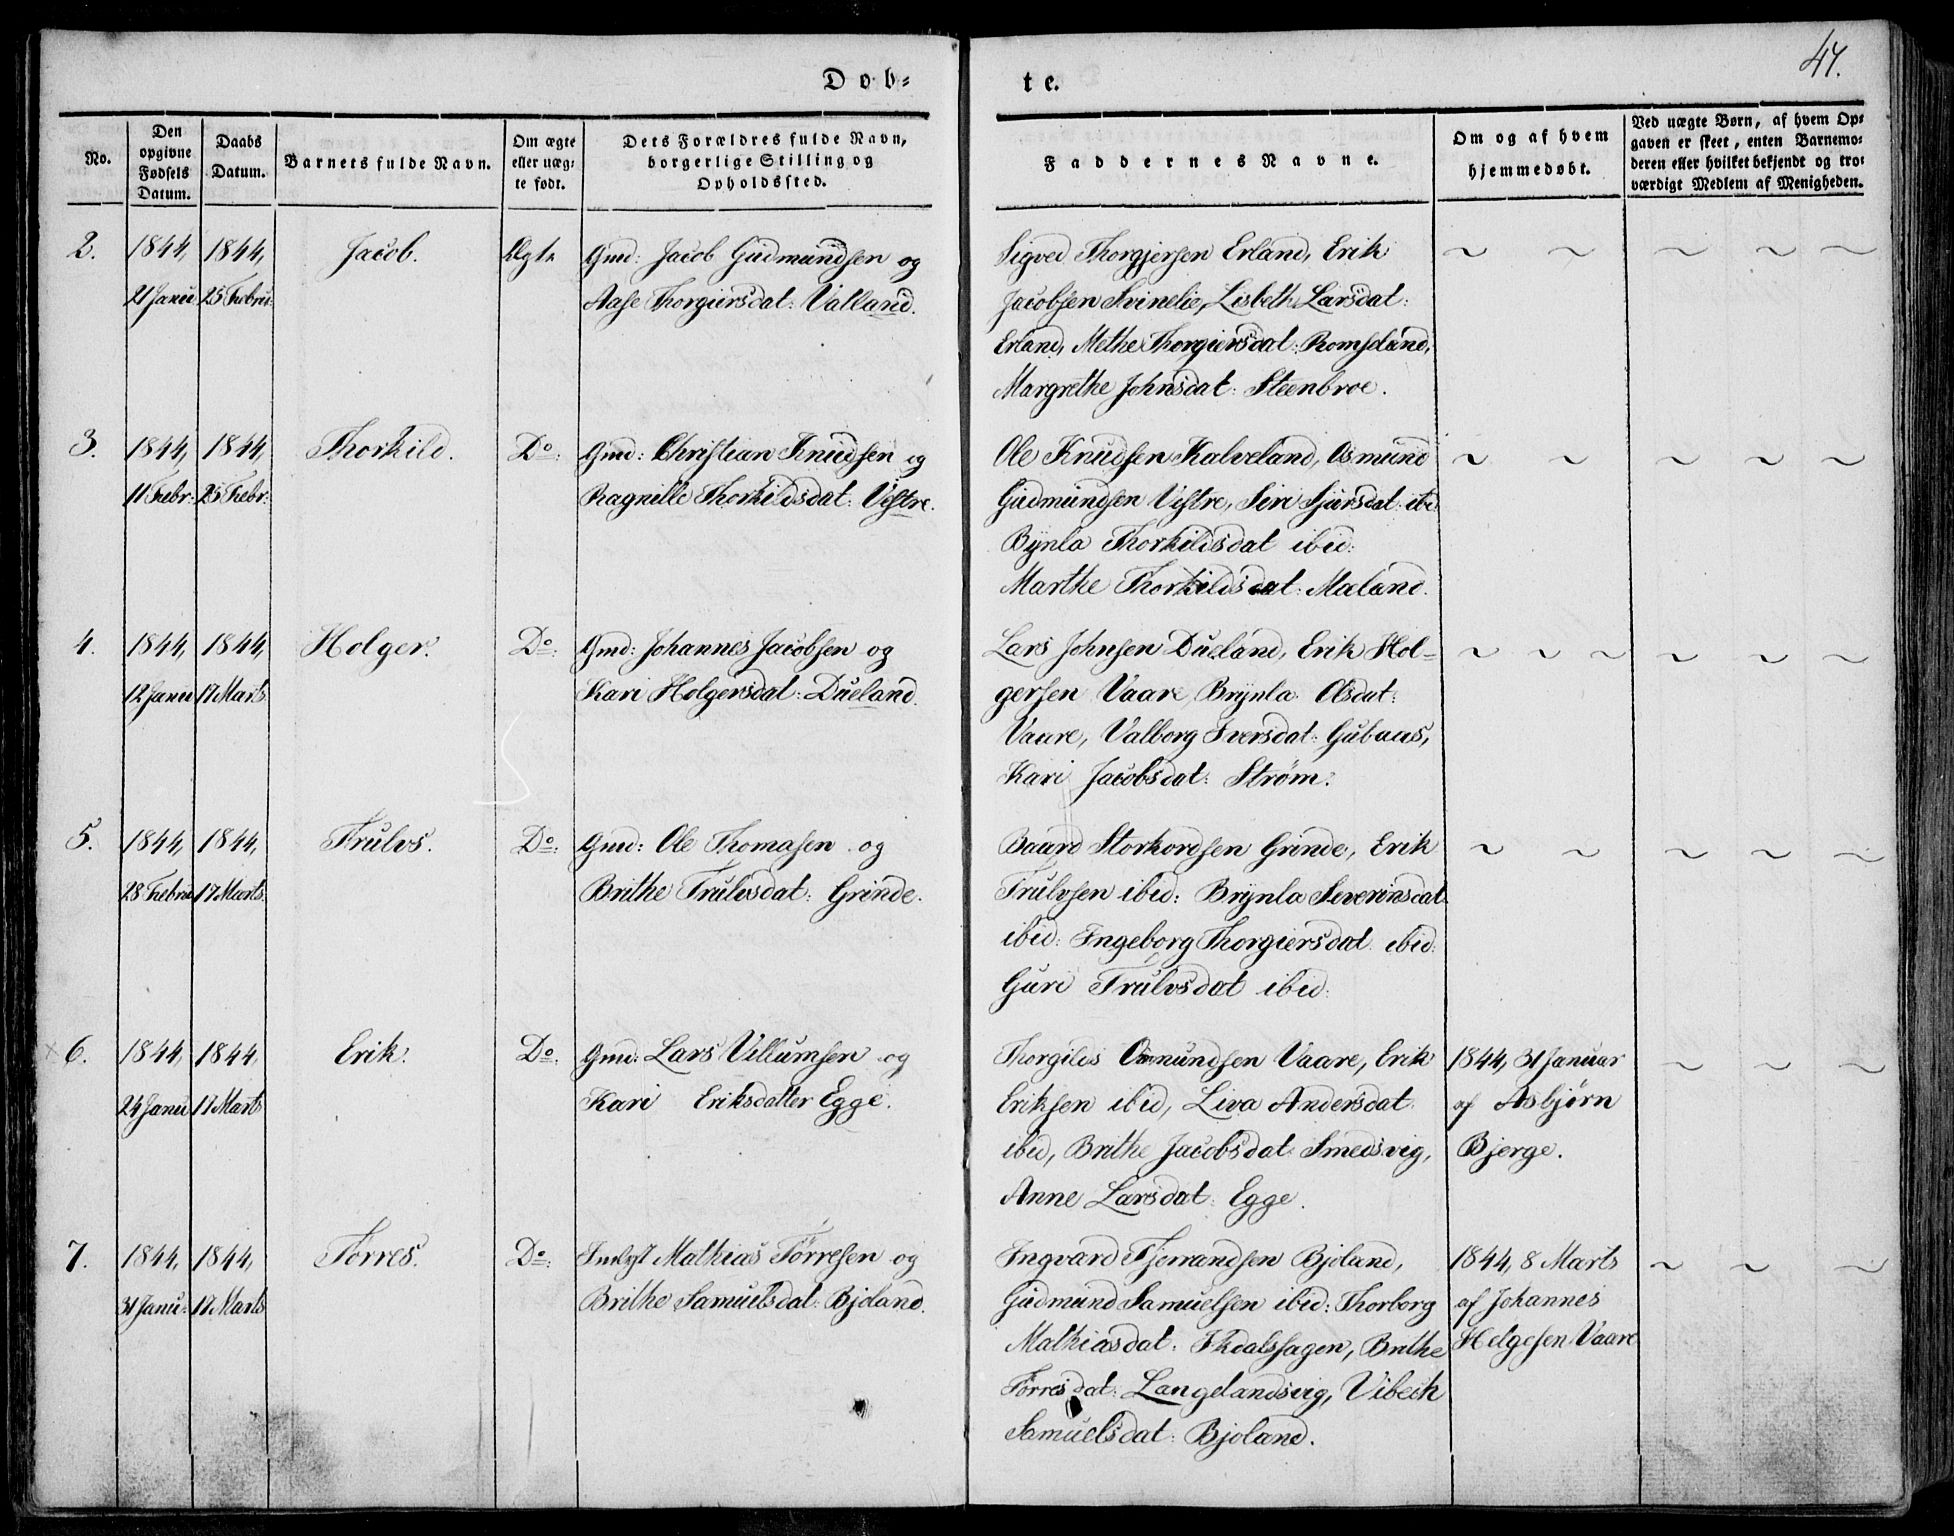 Døb-
te.
47.
No.
Den opgivne Fødsels Datum.
Daabs Datum.
Barnets fulde Navn.
Om ægte eller uægte født.
Dets Forældres fulde Navn, borgerlige Stilling og Opholdssted.
Faddernes Navne.
Om og af hvem hjemmedøbt.
Ved uægte Børn, af hvem Opgaven er skeet, enten Barnemoderen eller hvilket bekjendt og troværdigt Medlem af Menigheden.
2. 1844, 1844, Jacob. Ægte Gmd: Jacob Gudmundsen og
21 Janu: 25 Febru: Aase Thorgiersdat: Valland.
Sigved Thorgjersen Erland, Erik
Jacobsen Svinelie, Lisbeth Larsdat:
Erland, Methe Thorgiersdat: Romseland,
Margrethe Johnsdat: Steenbroe.
3. 1844, 1844, Thorkild. Do: Gmd: Christian Knudsen og
11 Febr: 25 Febr: Ragnille Thorkildsdat: Vestre.
Ole Knudsen Kalveland, Osmund
Gudmundsen Vestre, Siri Sjursdat: ibd
Bynla Thorkildsdat ibid:
Marthe Thorkildsdat: Mæland.
4. 1844, 1844, Holger. Do: Gmd: Johannes Jacobsen og
12 Janu 17 Marts Kari Holgersdat: Dueland.
Lars Johnsen Dueland, Erik Hol-
gersen Vaare, Brynla Olsdat:
Vaare, Valborg Iversdat: Gubaas,
Kari Jacobsdat: Strøm.
5. 1844, 1844, Trulvs. Do: Gmd: Ole Thomasen og
28 Febru 17 Marts. Brithe Trulvsdat: Grinde.
Baard Storkordsen Grinde, Erik
Trulvsen ibid: Brynla Severinsdat
ibid: Ingeborg Thorgiersdat ibid.
Guri Trulvsdat ibid:
6. 1844, 1844, Erik. Do: Gmd: Lars Villumsen og
24 Janu 17 Marts Kari Eriksdatter Egge.
Thorgilds Osmundsen Vaare, Erik
Eriksen ibid, Liva Andersdat:
ibid, Brithe Jacobsdat: Smedsvig,
Anne Larsdat: Egge.
1844, 31 Januar
af Asbjørn
Bjerge.
7. 1844, 1844, Tørres. Do: Indlyst Mathias Tørresen og
31 Janu: 17 Marts Brithe Samuelsdat: Bjoland.
Ingvard Tjerrandsen Bjoland,
Gudmund Samuelsen ibid: Thorborg
Mathiasdat: Brithe
Tørresdat: Langelandsvig, Vibech
Samuelsdat: Bjoland.
1844, 8 Marts
af Johannes
Helgesen Vaare